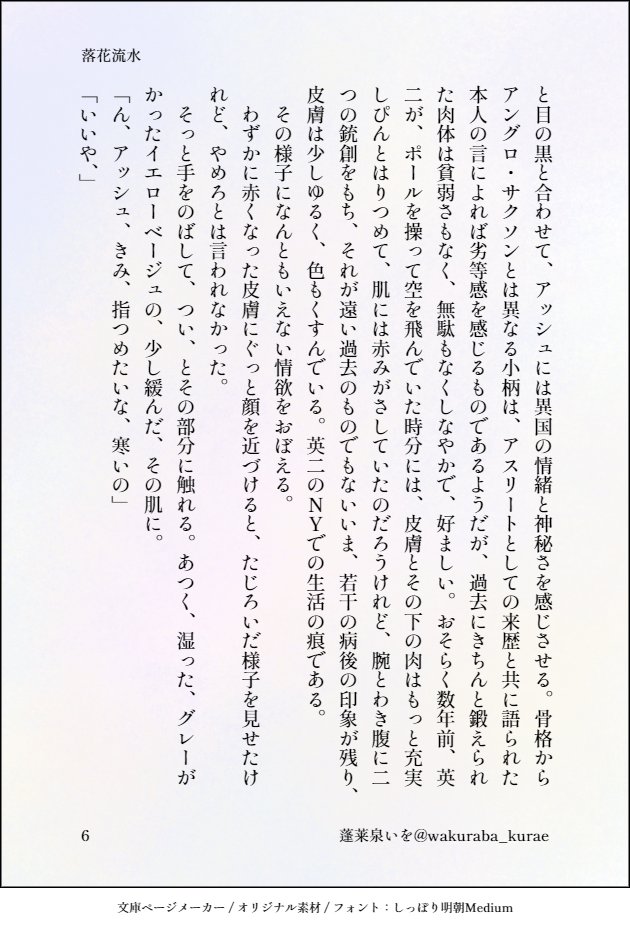 落花流水
と目の黒と合わせて、アッシュには異国の情緒と神秘さを感じさせる。骨格から
アングロ・サクソンとは異なる小柄は、アスリートとしての来歴と共に語られた
本人の言によれば劣等感を感じるものであるようだが、過去にきちんと鍛えられ
た肉体は貧弱さもなく、無駄もなくしなやかで、好ましい。おそらく数年前、英
二が、ポールを操って空を飛んでいた時分には、皮膚とその下の肉はもっと充実
しぴんとはりつめて、肌には赤みがさしていたのだろうけれど、腕とわき腹に二
つの銃創をもち、それが遠い過去のものでもないいま、若干の病後の印象が残り、
皮膚は少しゆるく、色もくすんでいる。英二のNYでの生活の痕である。
その様子になんともいえない情欲をおぼえる。
わずかに赤くなった皮膚にぐっと顔を近づけると、たじろいだ様子を見せたけ
れど、やめろとは言われなかった。
そっと手をのばして、つい、とその部分に触れる。あつく、湿った、グレーが
かったイエローベージュの、少し緩んだ、その肌に。
「ん、アッシュ、きみ、指つめたいな、寒いの」
「いいや、」
6
蓬莱泉いを@wakuraba_kurae
文庫ページメーカー / オリジナル素材 / フォント：しっぽり明朝Medium